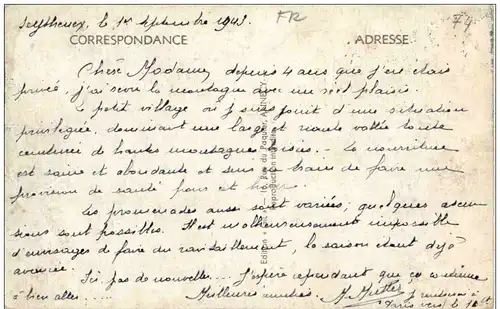 Seythenex, le 1er Septembre 1943.
FR
74
CORRESPONDANCE
ADRESSE
Chère Madame, depuis 4 ans que j'en étais
privée, j'ai revu la montagne avec un réel plaisir.
Le petit village où je suis jouit d'une situation
privilégiée, dominant une large et riante vallée toute
de hautes montagnes boisées. - La nourriture
est saine et abondante et je suis en train de faire une
provision de santé pour cet hiver.
Les promenades aussi sont variées, quelques ascen
sions sont possibles. Il est malheureusement impossible
d'envisager de faire du ravitaillement, la saison étant déjà
avancée.
Ici, pas de nouvelle.... J'espère cependant que ça va
à bien aller.....
Meilleures amitiés.
Je rentrerai à
Paris vers le
Edition
Rue du Pâquier, ANNECY
Reproduction interdite